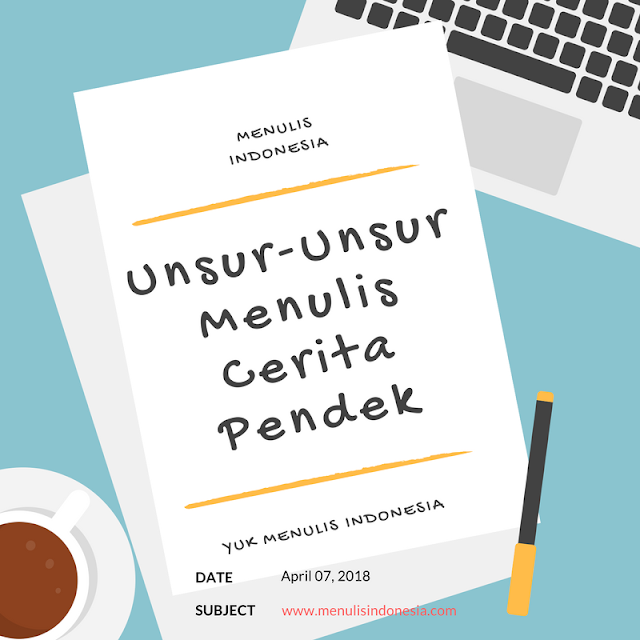 MENULIS
INDONESIA
Unsur-Unsur
Menulis
Cerita
Pendek
YUK MENULIS INDONESIA
DATE April 07, 2018
SUBJECT www.menulisindonesia.com